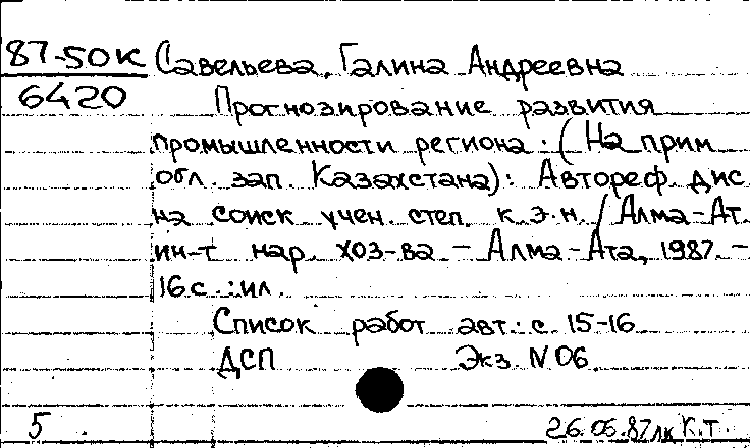 87-50к Савельева, Галина Андреевна
6420 Прогнозирование развития
промышленности региона : (На прим.
обл. зап. Казахстана) : Автореф. дис.
на соиск. учен. степ. к.э.н. / Алма-Ат.
ин-т нар. хоз-ва — Алма-Ата, 1987. —
16 с. : ил.
Список работ авт.: с. 15-16
ДСП Экз. N 06
5 26.06.87лк К.Т.